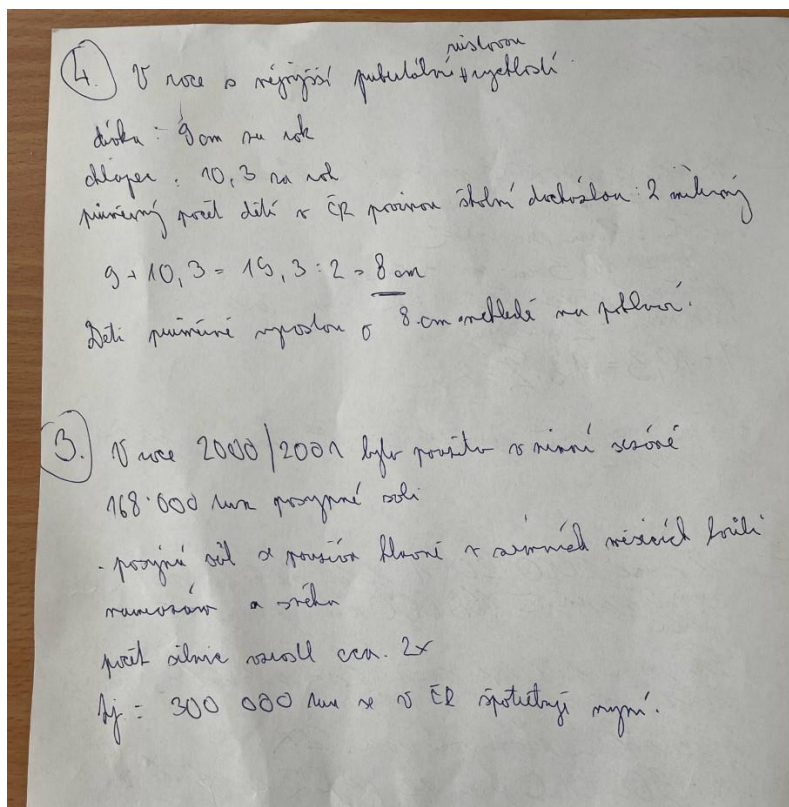 4. V roce s nejvyšší pubertální růstovou rychlostí
dívka : 9 cm za rok
chlapec : 10,3 za rok
průměrný počet dětí v ČR povinou školní docházkou : 2 miliony
9 + 10,3 = 19,3 : 2 = 8 cm
Děti průměrně vyrostou o 8 cm nehledě na pohlaví.
3. V roce 2000/2001 bylo použito v zimní sezóně
168 000 tun posypné soli
- posypná sůl se používá hlavně v zimních měsících kvůli
a sněhu
počet silnic vzrostl cca. 2x
tj = 300 000 tun se v ČR spotřebuje nyní.